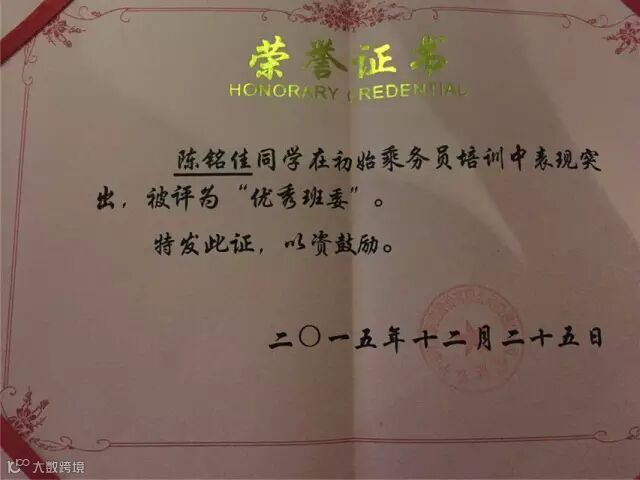 荣誉证书
HONORARY CREDENTIAL
陈铭佳同学在初始乘务员培训中表现突
出，被评为“优秀班委”。
特发此证，以资鼓励。
二〇一五年十二月二十五日
大数跨境